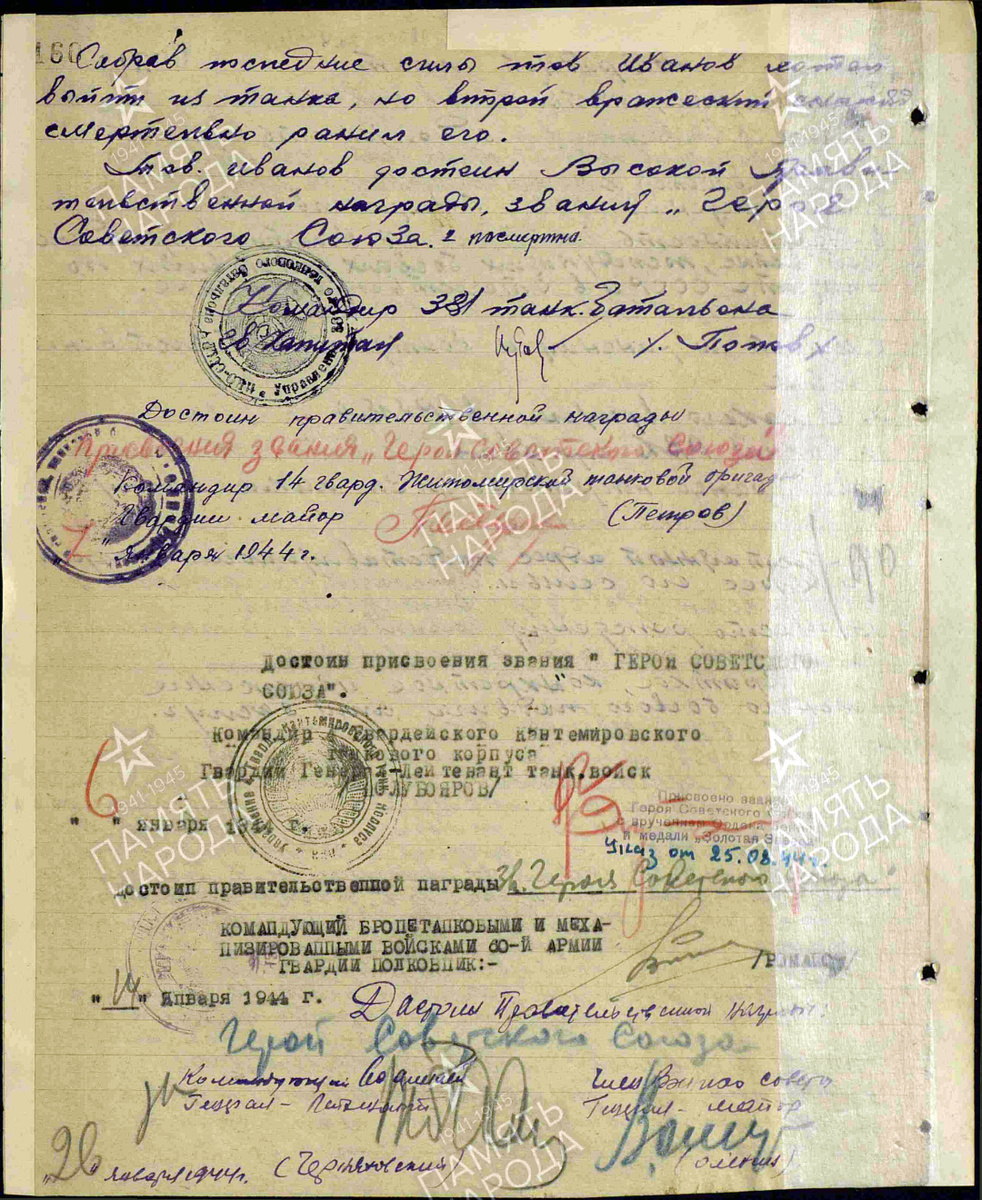 160
Собрав последние силы тов Иванов хотел
выйти из танка, но второй вражеский снаряд
смертельно ранил его.
Тов. Иванов достоин Высокой
тельственной награды, звания „Героя
Советского Союза." посмертно.
Командир 381 танк. батальона
гв. Капитан Попов
Достоин правительственной награды
присвоения звания „Герой Советского Союза"
Командир 14 гвард. Житомирской танковой бригад
Гвардии майор (Петров)
7 " Января 1944 г.
Достоин присвоения звания " ГЕРОЙ СОВЕТСКОГО
СОЮЗА".
Командир 4 Гвардейского Кантемировского
танкового корпуса
Гвардии Генерал-Лейтенант танк.войск
ПОЛУБОЯРОВ/
" 6 " января 194
Присвоено звание
Героя Советского Союза
с вручением Ордена
и медали „Золотая Звезда"
Указ от 25.08.44г.
Достоин правительственной награды Зв. „Героя Советского Союза"
КОМАНДУЮЩИЙ БРОНЕТАНКОВЫМИ И МЕХА-
НИЗИРОВАННЫМИ ВОЙСКАМИ 60-Й АРМИИ
ГВАРДИИ ПОЛКОВНИК:-
" 14 " Января 1944 г.
Достоин Правительственной награды:
Герой Советского Союза
Командующий 60 армией Член Военного совета
Генерал-Лейтенант Генерал-майор
"26" января 1944г. (Черняховский) (Оленин)
ПАМЯТЬ НАРОДА
1941-1945